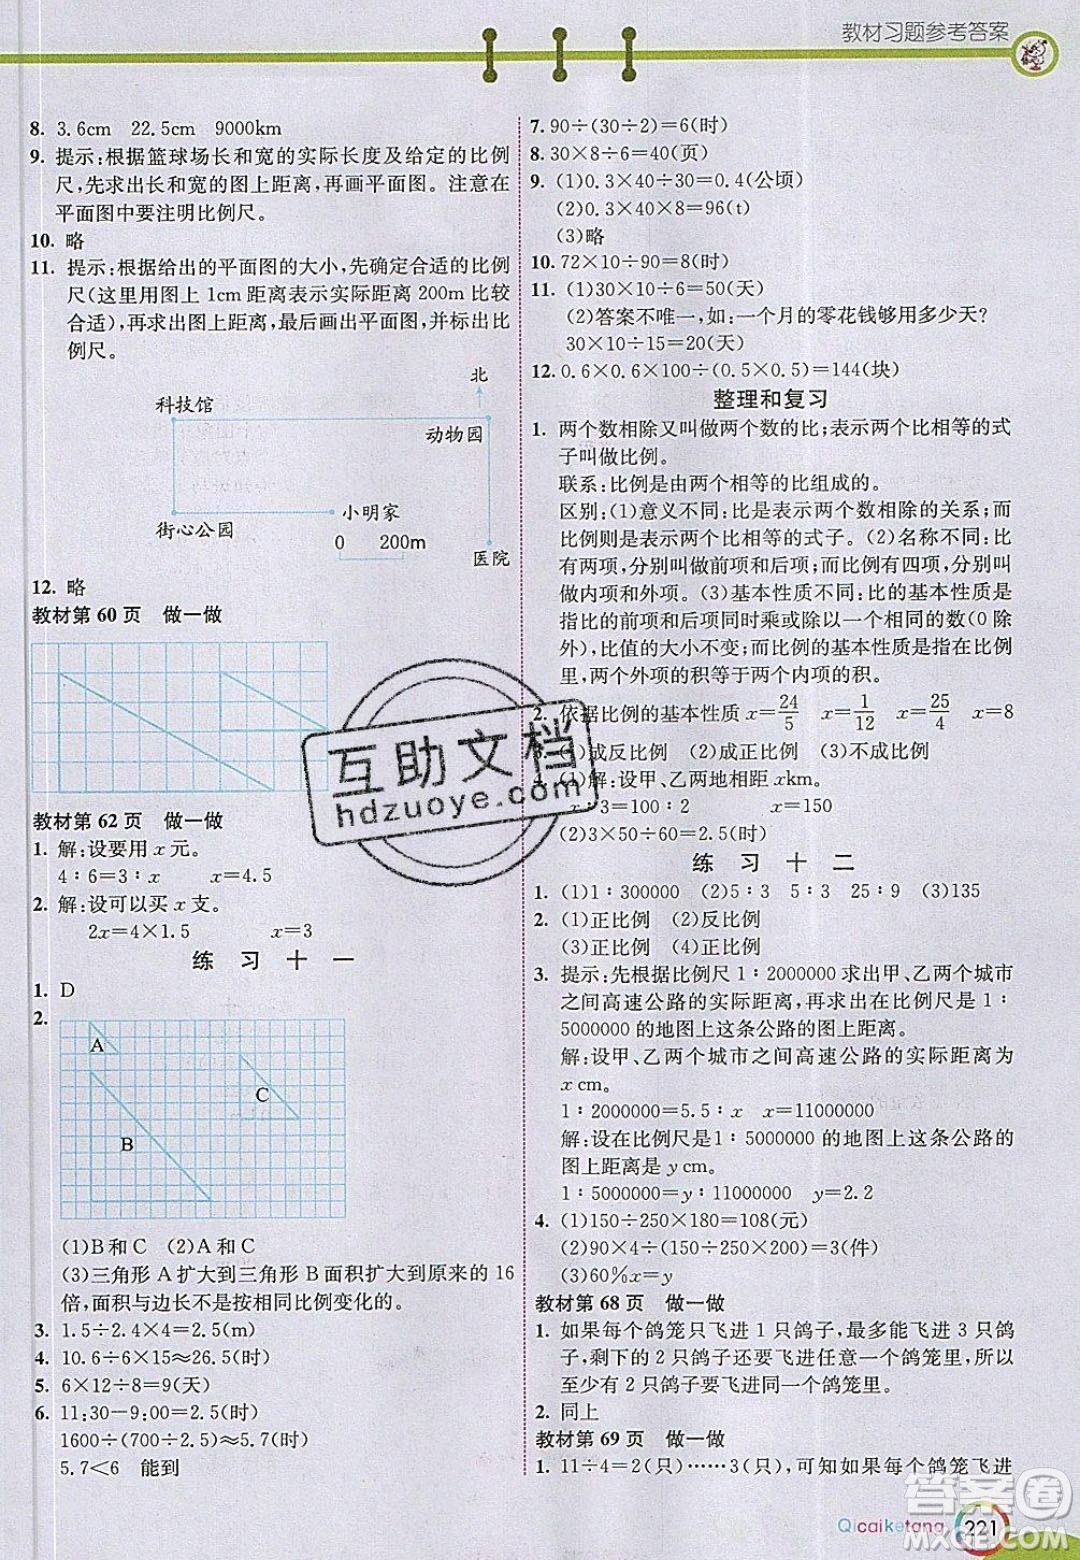 教材习题参考答案
8. 3.6cm 22.5cm 9000km
9. 提示:根据篮球场长和宽的实际长度及给定的比例
尺,先求出长和宽的图上距离,再画平面图。注意在
平面图中要注明比例尺。
10. 略
11. 提示:根据给出的平面图的大小,先确定合适的比例
尺(这里用图上 1cm 距离表示实际距离 200m 比较
合适),再求出图上距离,最后画出平面图,并标出比
例尺。
北
科技馆
动物园
小明家
街心公园
0 200m
医院
12. 略
教材第 60 页 做一做
教材第 62 页 做一做
1. 解:设要用 x 元。
4∶6=3∶x x=4.5
2. 解:设可以买 x 支。
2x=4×1.5 x=3
练 习 十 一
1. D
2.
A
C
B
(1)B 和 C (2)A 和 C
(3)三角形 A 扩大到三角形 B 面积扩大到原来的 16
倍,面积与边长不是按相同比例变化的。
3. 1.5÷2.4×4=2.5(m)
4. 10.6÷6×15≈26.5(时)
5. 6×12÷8=9(天)
6. 11:30-9:00=2.5(时)
1600÷(700÷2.5)≈5.7(时)
5.7<6 能到
7. 90÷(30÷2)=6(时)
8. 30×8÷6=40(页)
9. (1)0.3×40÷30=0.4(公顷)
(2)0.3×40×8=96(t)
(3)略
10. 72×10÷90=8(时)
11. (1)30×10÷6=50(天)
(2)答案不唯一,如:一个月的零花钱够用多少天?
30×10÷15=20(天)
12. 0.6×0.6×100÷(0.5×0.5)=144(块)
整理和复习
1. 两个数相除又叫做两个数的比;表示两个比相等的式
子叫做比例。
联系:比例是由两个相等的比组成的。
区别:(1)意义不同:比表示两个数相除的关系;而
比例则是表示两个比相等的式子。(2)名称不同:比
有两项,分别叫前项和后项;而比例有四项,分别叫
内项和外项。(3)基本性质不同:比的基本性质是
指比的前项和后项同时乘或除以一个相同的数(0 除
外),比值的大小不变;而比例的基本性质是在比例
里,两个外项的积等于两个内项的积。
2. 依据比例的基本性质 x=24/5 x=1/12 x=25/4 x=8
3. (1)成反比例 (2)成正比例 (3)不成比例
4. (1)解:设甲、乙两地相距 xkm。
x∶3=100∶2 x=150
(2)3×50÷60=2.5(时)
练 习 十 二
1. (1)1∶300000 (2)5∶3 5∶3 25∶9 (3)135
2. (1)正比例 (2)反比例
(3)正比例 (4)反比例
3. 提示:先根据比例尺 1∶2000000 求出甲、乙两个城市
之间高速公路的实际距离,再求出在比例尺是 1∶
5000000 的地图上这条公路的图上距离。
解:设甲、乙两个城市之间高速公路的实际距离为
x cm。
1∶2000000=5.5∶x x=11000000
解:设在比例尺是 1∶5000000 的地图上这条公路的
图上距离是 y cm。
1∶5000000=y∶11000000 y=2.2
4. (1)150÷250×180=108(元)
(2)90×4÷(30×4)=3(件)
(3)60%x=y
教材第 68 页 做一做
1. 如果每个鸽笼只飞进 1 只鸽子,最多能飞进 3 只鸽
子,剩下的 2 只鸽子要飞进任意一个鸽笼里,所以
至少有 2 只鸽子要飞进同一个鸽笼里。
2. 同上
教材第 69 页 做一做
1. 11÷4=2(只)……3(只),可知如果每个鸽笼飞进
互助文档
hdzuoye.com
Qicaiketang 221
答案圈
MXQE.COM